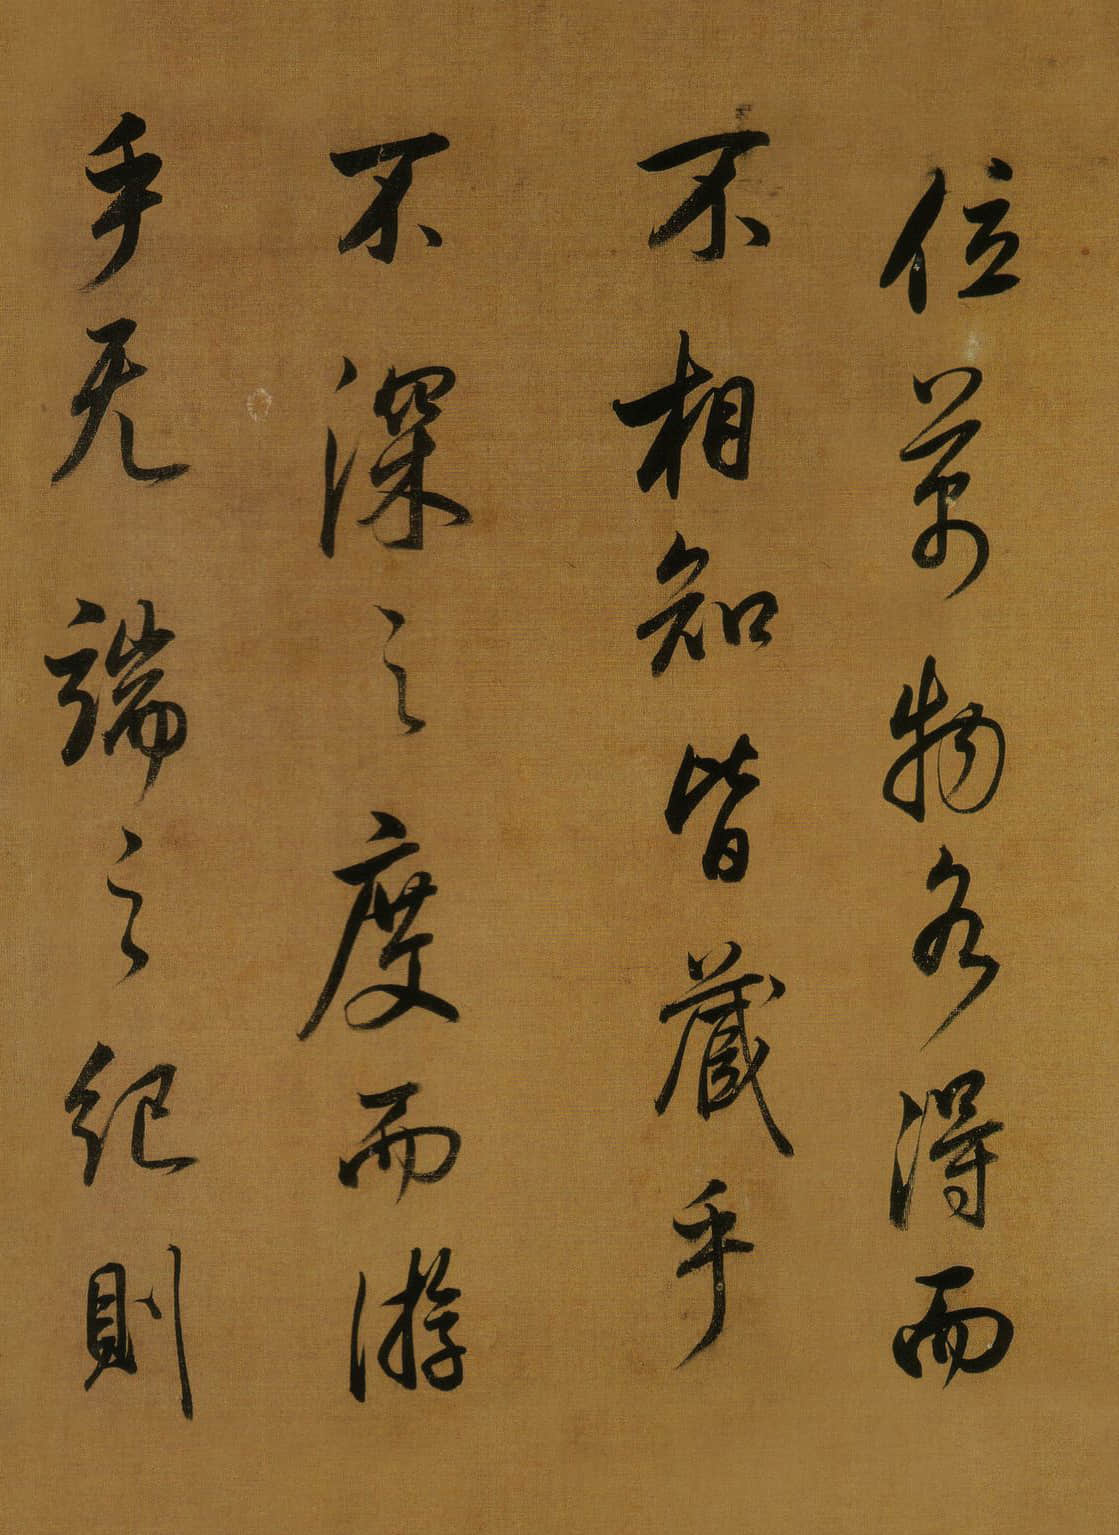 位萬物各得而
不相知皆藏乎
不深之度而游
乎无端之紀則